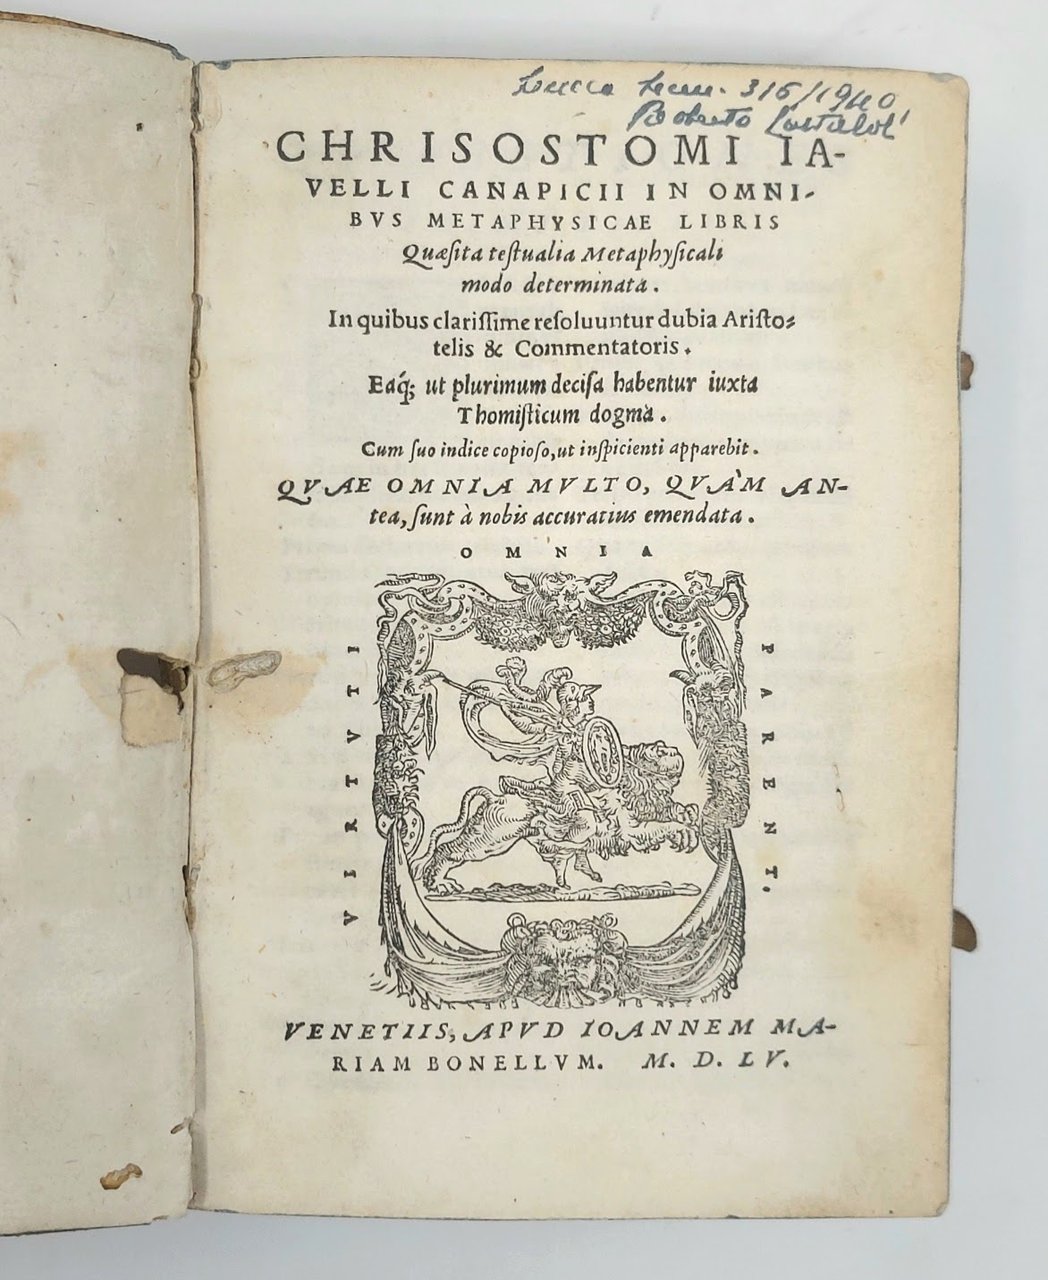 Lucca 3/6/1940
Roberto
CHRISOSTOMI IA-
VELLI CANAPICII IN OMNI-
BVS METAPHYSICAE LIBRIS
Quæſita teſtualia Metaphyſicali
modo determinata.
In quibus clariſſime reſoluuntur dubia Ariſto-
telis & Commentatoris.
Eaq́; ut plurimum deciſa habentur iuxta
Thomiſticum dogmà.
Cum ſuo indice copioſo, ut inſpicienti apparebit.
QVAE OMNIA MVLTO, QVÀM AN-
tea, ſunt à nobis accuratius emendata.
OMNIA
VIRTVTI
PARENT.
VENETIIS, APVD IOANNEM MA-
RIAM BONELLVM. M. D. LV.